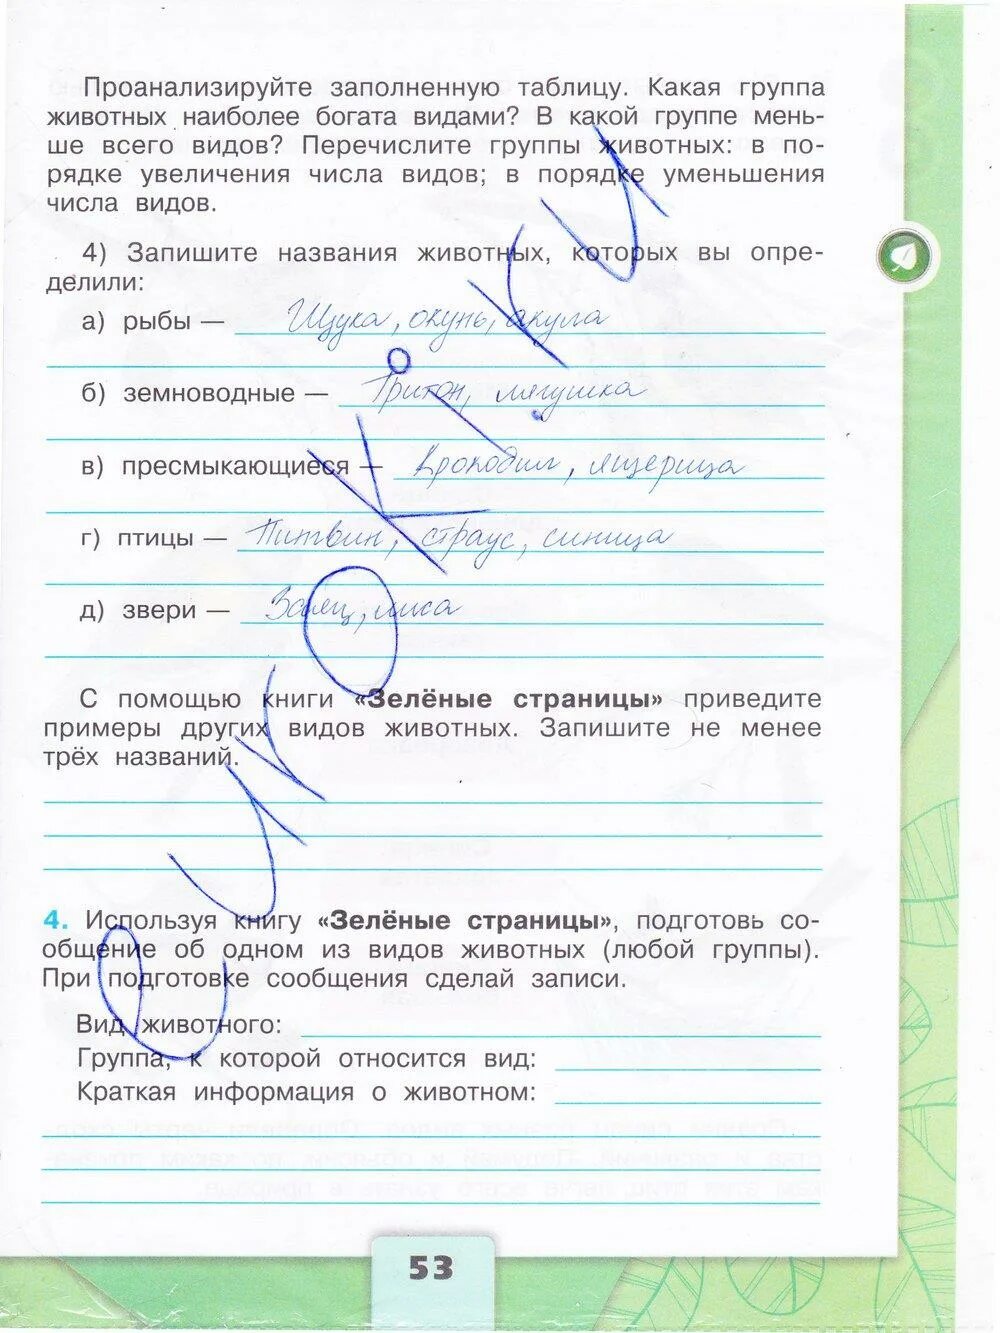 Проанализируйте заполненную таблицу. Какая группа
животных наиболее богата видами? В какой группе мень-
ше всего видов? Перечислите группы животных: в по-
рядке увеличения числа видов; в порядке уменьшения
числа видов.
4) Запишите названия животных, которых вы опре-
делили:
а) рыбы — Щука, окунь, акула
б) земноводные — Тритон, лягушка
в) пресмыкающиеся — Крокодил, ящерица
г) птицы — Пингвин, страус, синица
д) звери — Заяц, лиса
С помощью книги «Зелёные страницы» приведите
примеры других видов животных. Запишите не менее
трёх названий.
4. Используя книгу «Зелёные страницы», подготовь со-
общение об одном из видов животных (любой группы).
При подготовке сообщения сделай записи.
Вид животного:
Группа, к которой относится вид:
Краткая информация о животном:
53